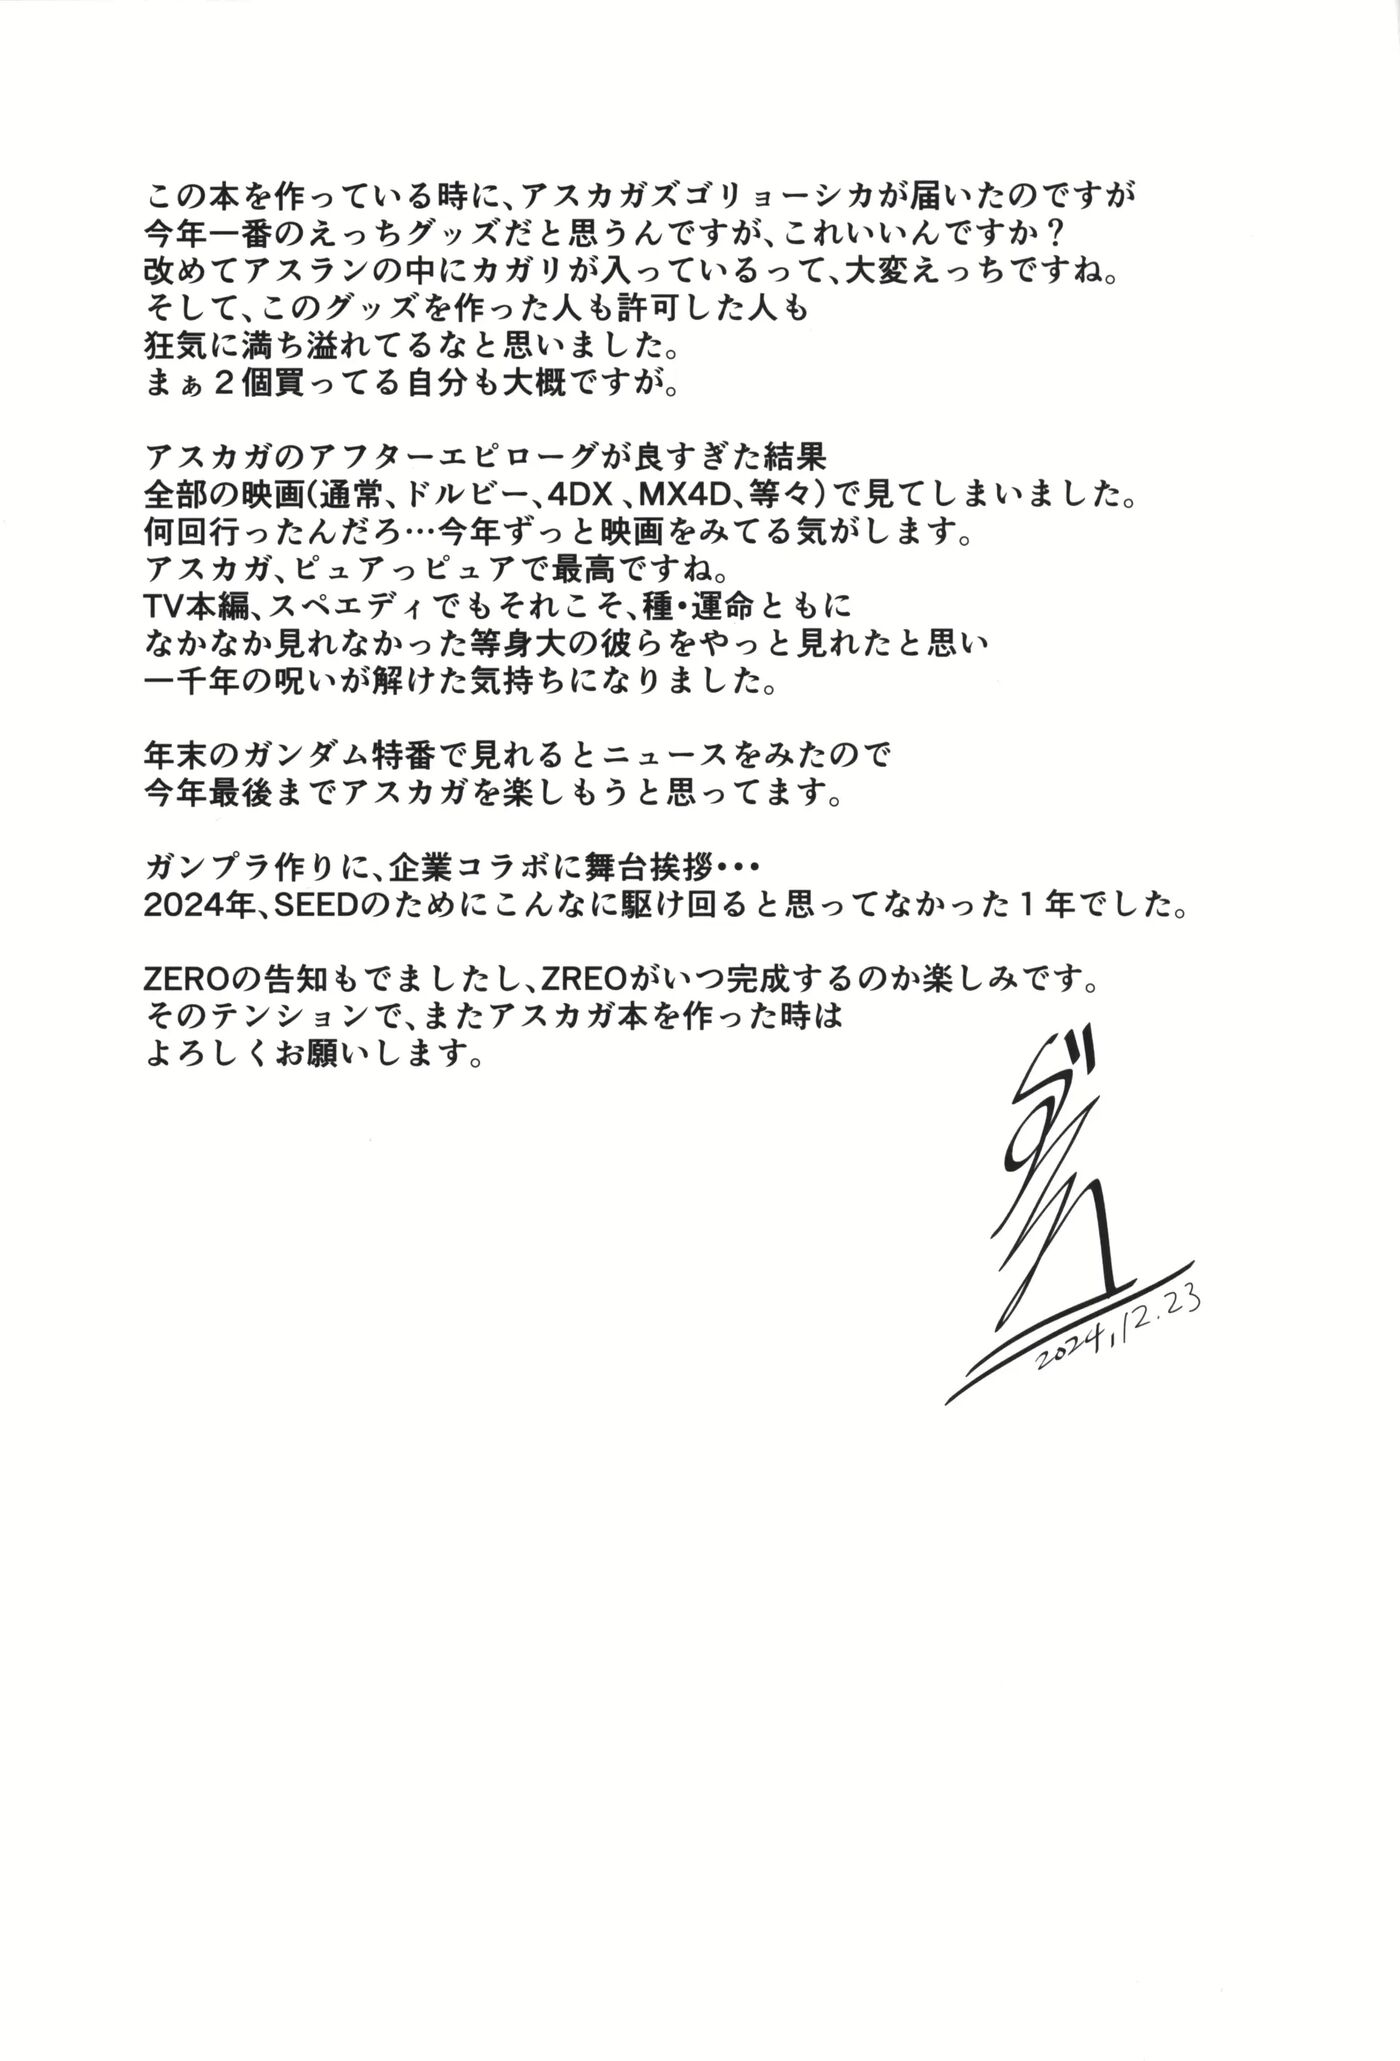 この本を作っている時に、アスカガズゴリョーシカが届いたのですが
今年一番のえっちグッズだと思うんですが、これいいんですか？
改めてアスランの中にカガリが入っているって、大変えっちですね。
そして、このグッズを作った人も許可した人も
狂気に満ち溢れてるなと思いました。
まぁ２個買ってる自分も大概ですが。
アスカガのアフターエピローグが良すぎた結果
全部の映画(通常、ドルビー、4DX 、MX4D、等々)で見てしまいました。
何回行ったんだろ…今年ずっと映画をみてる気がします。
アスカガ、ピュアっピュアで最高ですね。
TV本編、スペエディでもそれこそ、種・運命ともに
なかなか見れなかった等身大の彼らをやっと見れたと思い
一千年の呪いが解けた気持ちになりました。
年末のガンダム特番で見れるとニュースをみたので
今年最後までアスカガを楽しもうと思ってます。
ガンプラ作りに、企業コラボに舞台挨拶・・・
2024年、SEEDのためにこんなに駆け回ると思ってなかった１年でした。
ZEROの告知もでましたし、ZREOがいつ完成するのか楽しみです。
そのテンションで、またアスカガ本を作った時は
よろしくお願いします。
2024.12.23